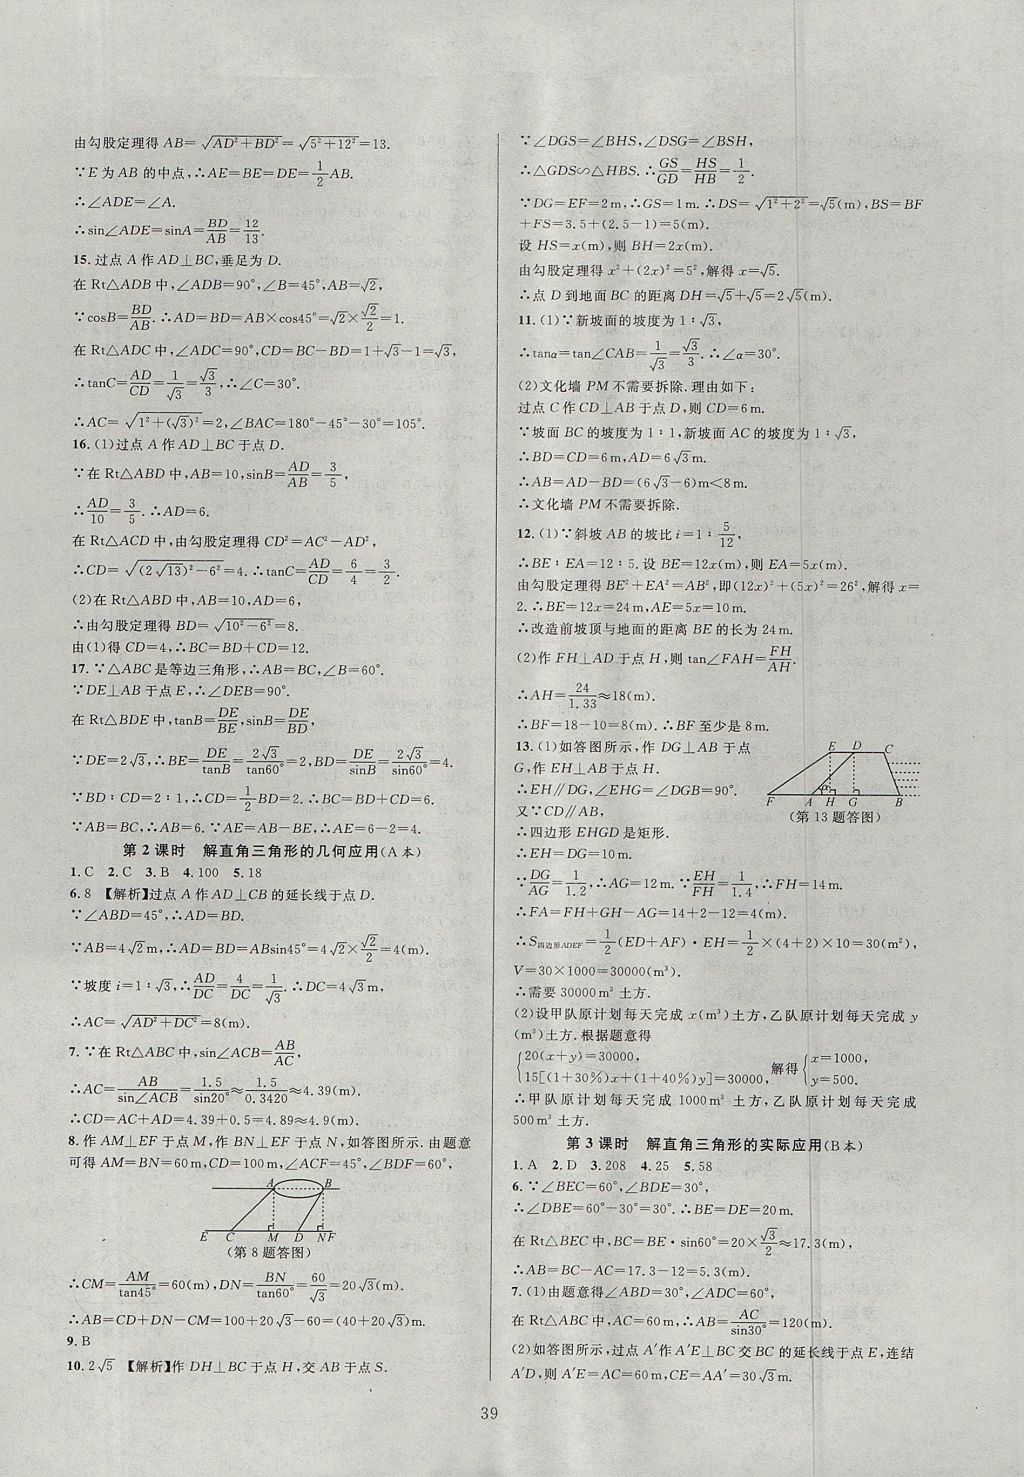 由勾股定理得 AB=√(AD²+BD²)=√(5²+12²)=13.
∵E 为 AB 的中点,∴AE=BE=DE=1/2AB.
∴∠ADE=∠A.
∴sin∠ADE=sinA=BD/AB=12/13.
15.过点 A 作 AD⊥BC,垂足为 D.
在 Rt△ADB 中,∠ADB=90°,∠B=45°,AB=√2,
∵cosB=BD/AB.∴AD=BD=AB×cos45°=√2×√2/2=1.
在 Rt△ADC 中,∠ADC=90°,CD=BC−BD=1+√3−1=√3,
∴tanC=AD/CD=1/√3=√3/3,∴∠C=30°.
∴AC=√(1²+(√3)²)=2,∠BAC=180°−45°−30°=105°.
16.(1)过点 A 作 AD⊥BC 于点 D.
∵在 Rt△ABD 中,AB=10,sinB=AD/AB=3/5,
∴AD/10=3/5.∴AD=6.
在 Rt△ACD 中,由勾股定理得 CD²=AC²−AD²,
∴CD=√((2√13)²−6²)=4.∴tanC=AD/CD=6/4=3/2.
(2)在 Rt△ABD 中,AB=10,AD=6,
∴由勾股定理得 BD=√(10²−6²)=8.
由(1)得 CD=4,∴BC=BD+CD=12.
17.∵△ABC 是等边三角形,∴AB=BC,∠B=60°.
∵DE⊥AB 于点 E,∴∠DEB=90°.
在 Rt△BDE 中,tanB=DE/BE,sinB=DE/BD,
∵DE=2√3,∴BE=DE/tanB=2√3/tan60°=2,BD=DE/sinB=2√3/sin60°=4.
∵BD∶CD=2∶1,∴CD=1/2BD=2.∴BC=BD+CD=6.
∵AB=BC,∴AB=6.∵AE=AB−BE,∴AE=6−2=4.
第 2 课时 解直角三角形的几何应用(A本)
1.C 2.C 3.B 4.100 5.18
6.8 【解析】过点 A 作 AD⊥CB 的延长线于点 D.
∵∠ABD=45°,∴AD=BD.
∵AB=4√2m,∴AD=BD=ABsin45°=4√2×√2/2=4(m).
∵坡度 i=1∶√3,∴AD/DC=4/DC=1/√3.∴DC=4√3m,
∴AC=√(AD²+DC²)=8(m).
7.∵在 Rt△ABC 中,sin∠ACB=AB/AC,
∴AC=AB/sin∠ACB=1.5/sin20°≈1.5/0.3420≈4.39(m).
∴CD=AD+AC=4.39+0.5=4.89≈4.9(m).
8.作 AM⊥EF 于点 M,作 BN⊥EF 于点 N,如答图所示.由题意
可得 AM=BN=60m,CD=100m,∠ACF=45°,∠BDF=60°,
A B
E C M D N F
(第 8 题答图)
∴CM=AM/tan45°=60(m),DN=BN/tan60°=60/√3=20√3(m).
∴AB=CD+DN−CM=100+20√3−60=(40+20√3)m.
9.B
10.2√5 【解析】作 DH⊥BC 于点 H,交 AB 于点 S.
∵∠DGS=∠BHS,∠DSG=∠BSH,
∴△GDS∽△HBS.∴GS/GD=HS/HB=1/2.
∵DG=EF=2m,∴GS=1m.∴DS=√(1²+2²)=√5(m),BS=BF
+FS=3.5+(2.5−1)=5(m).
设 HS=x(m),则 BH=2x(m).
由勾股定理得 x²+(2x)²=5²,解得 x=√5.
∴点 D 到地面 BC 的距离 DH=√5+√5=2√5(m).
11.(1)∵新坡面的坡度为 1∶√3,
∴tanα=tan∠CAB=1/√3=√3/3.∴∠α=30°.
(2)文化墙 PM 不需要拆除.理由如下:
过点 C 作 CD⊥AB 于点 D,则 CD=6m.
∵坡面 BC 的坡度为 1∶1,新坡面 AC 的坡度为 1∶√3,
∴BD=CD=6m,AD=6√3m.
∴AB=AD−BD=(6√3−6)m<8m.
∴文化墙 PM 不需要拆除.
12.(1)∵斜坡 AB 的坡比 i=1∶5/12,
∴BE∶EA=12∶5.设 BE=12x(m),则 EA=5x(m).
由勾股定理得 BE²+EA²=AB²,即(12x)²+(5x)²=26²,解得 x=
2.∴BE=12x=24m,AE=5x=10m.
∴改造前坡顶与地面的距离 BE 的长为 24m.
(2)作 FH⊥AD 于点 H,则 tan∠FAH=FH/AH.
∴AH=24/1.33≈18(m).
∴BF=18−10=8(m).∴BF 至少是 8m.
13.(1)如答图所示,作 DG⊥AB 于点
G,作 EH⊥AB 于点 H.
∴EH∥DG,∠EHG=∠DGB=90°.
又∵CD∥AB,
∴四边形 EHGD 是矩形.
∴EH=DG.
E D C
F A H G B
(第 13 题答图)
∵DG/AG=1/1.2,∴AG=12m.∵EH/FH=1/1.4,∴FH=14m.
∴FA=FH+GH−AG=14+2−12=4(m).
∴S四边形ADEF=1/2(ED+AF)·EH=1/2×(4+2)×10=30(m²).
V=30×1000=30000(m³).
∴需要 30000m³ 土方.
(2)设甲队原计划每天完成 x(m³)土方,乙队原计划每天完成 y
(m³)土方.根据题意得
{20(x+y)=30000, 解得{x=1000,
15[(1+30%)x+(1+40%)y]=30000, y=500.
∴甲队原计划每天完成 1000m³ 土方,乙队原计划每天完成
500m³ 土方.
第 3 课时 解直角三角形的实际应用(B本)
1.A 2.D 3.208 4.25 5.58
6.∵∠BEC=60°,∠BDE=30°,
∴∠DBE=60°−30°=30°.∴BE=DE=20m.
在 Rt△BEC 中,BC=BE·sin60°=20×√3/2≈17.3(m),
∴AB=BC−AC=17.3−12=5.3(m).
7.(1)由题意得∠ABD=30°,∠ADC=60°,
在 Rt△ABC 中,AC=60m,∴AB=AC/sin30°=120(m).
(2)如答图所示,过点 A′作 A′E⊥BC 交 BC 的延长线于点 E,连结
A′D,则 A′E=AC=60m,CE=AA′=30√3m.
39